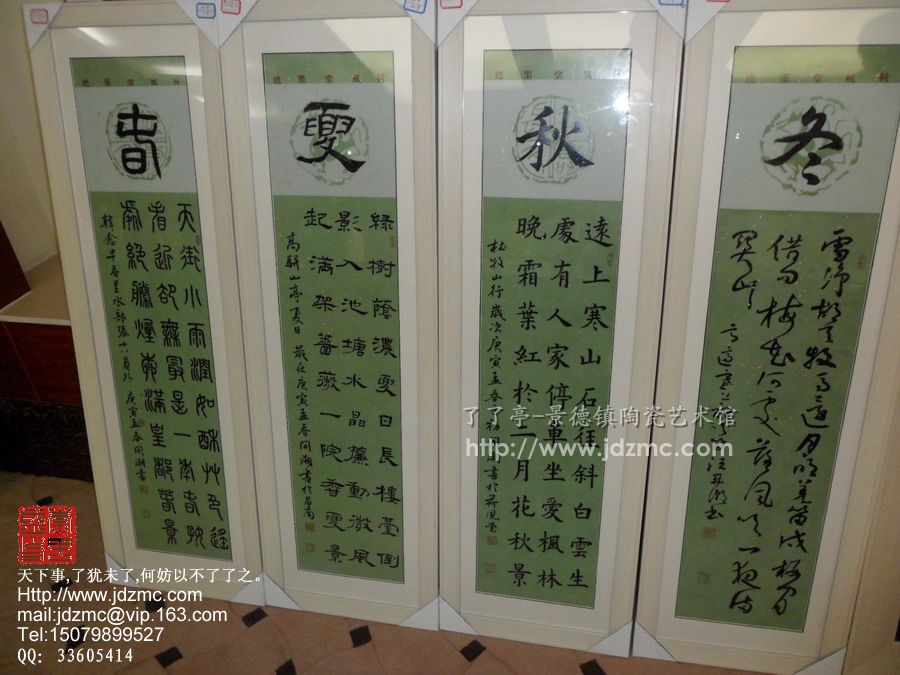 春
天街小雨潤如酥艸色遙
看近卻無最是一年春好
處絕勝煙柳滿皇都春景
韓愈早春呈水部張十八員外 庚寅孟春開湖書
夏
綠樹蔭濃夏日長樓臺倒
影入池塘水晶簾動微風
起滿架薔薇一院香夏景
高駢山亭夏日 歲在庚寅孟春開湖書於昌南
秋
遠上寒山石徑斜白雲生
處有人家停車坐愛楓林
晚霜葉紅於二月花秋景
杜牧山行歲次庚寅孟春
冬
雪淨胡天牧馬還月明羌笛戍樓間
借問梅花何處落風吹一夜滿
關山
高適塞上
了了亭-景德镇陶瓷艺术馆
http://www.jdzmc.com
天下事,了犹未了,何妨以不了了之。
Http://www.jdzmc.com
mail:jdzmc@vip.163.com
Tel:15079899527
QQ: 33605414